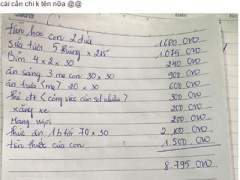 cái cần chi k tên nữa @@
tiền học con 2 đứa 1.680.000
Sữa tươi 5 thùng x 215 1.075.000
Bỉm 4 x 2 x 30 240.000
ăn sáng 3 mẹ con 30 x 30 900.000
ăn trưa (mẹ) 20 x 30 600.000
thẻ đt 300.000
xăng xe 200.000
200.000
thức ăn 1 b tối 70 x 30 2.100.000
tiền thuốc của con 1.500.000
8.795.000